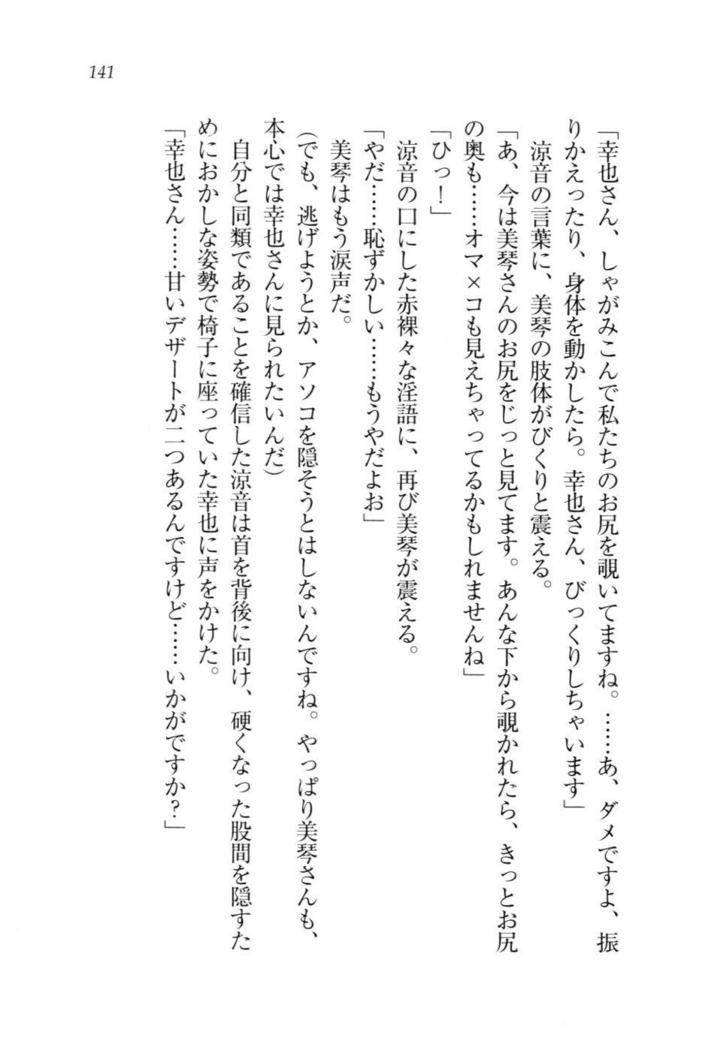 141
「幸也さん、しゃがみこんで私たちのお尻を覗いてますね。……あ、ダメですよ、振
りかえったり、身体を動かしたら。幸也さん、びっくりしちゃいます」
涼音の言葉に、美琴の肢体がびくりと震える。
「あ、今は美琴さんのお尻をじっと見てます。あんな下から覗かれたら、きっとお尻
の奥も……オマ×コも見えちゃってるかもしれませんね」
「ひっ！」
涼音の口にした赤裸々な淫語に、再び美琴が震える。
「やだ……恥ずかしい……もうやだよお」
美琴はもう涙声だ。
(でも、逃げようとか、アソコを隠そうとはしないんですね。やっぱり美琴さんも、
本心では幸也さんに見られたいんだ)
自分と同類であることを確信した涼音は首を背後に向け、硬くなった股間を隠すた
めにおかしな姿勢で椅子に座っていた幸也に声をかけた。
「幸也さん……甘いデザートが二つあるんですけど……いかがですか？」